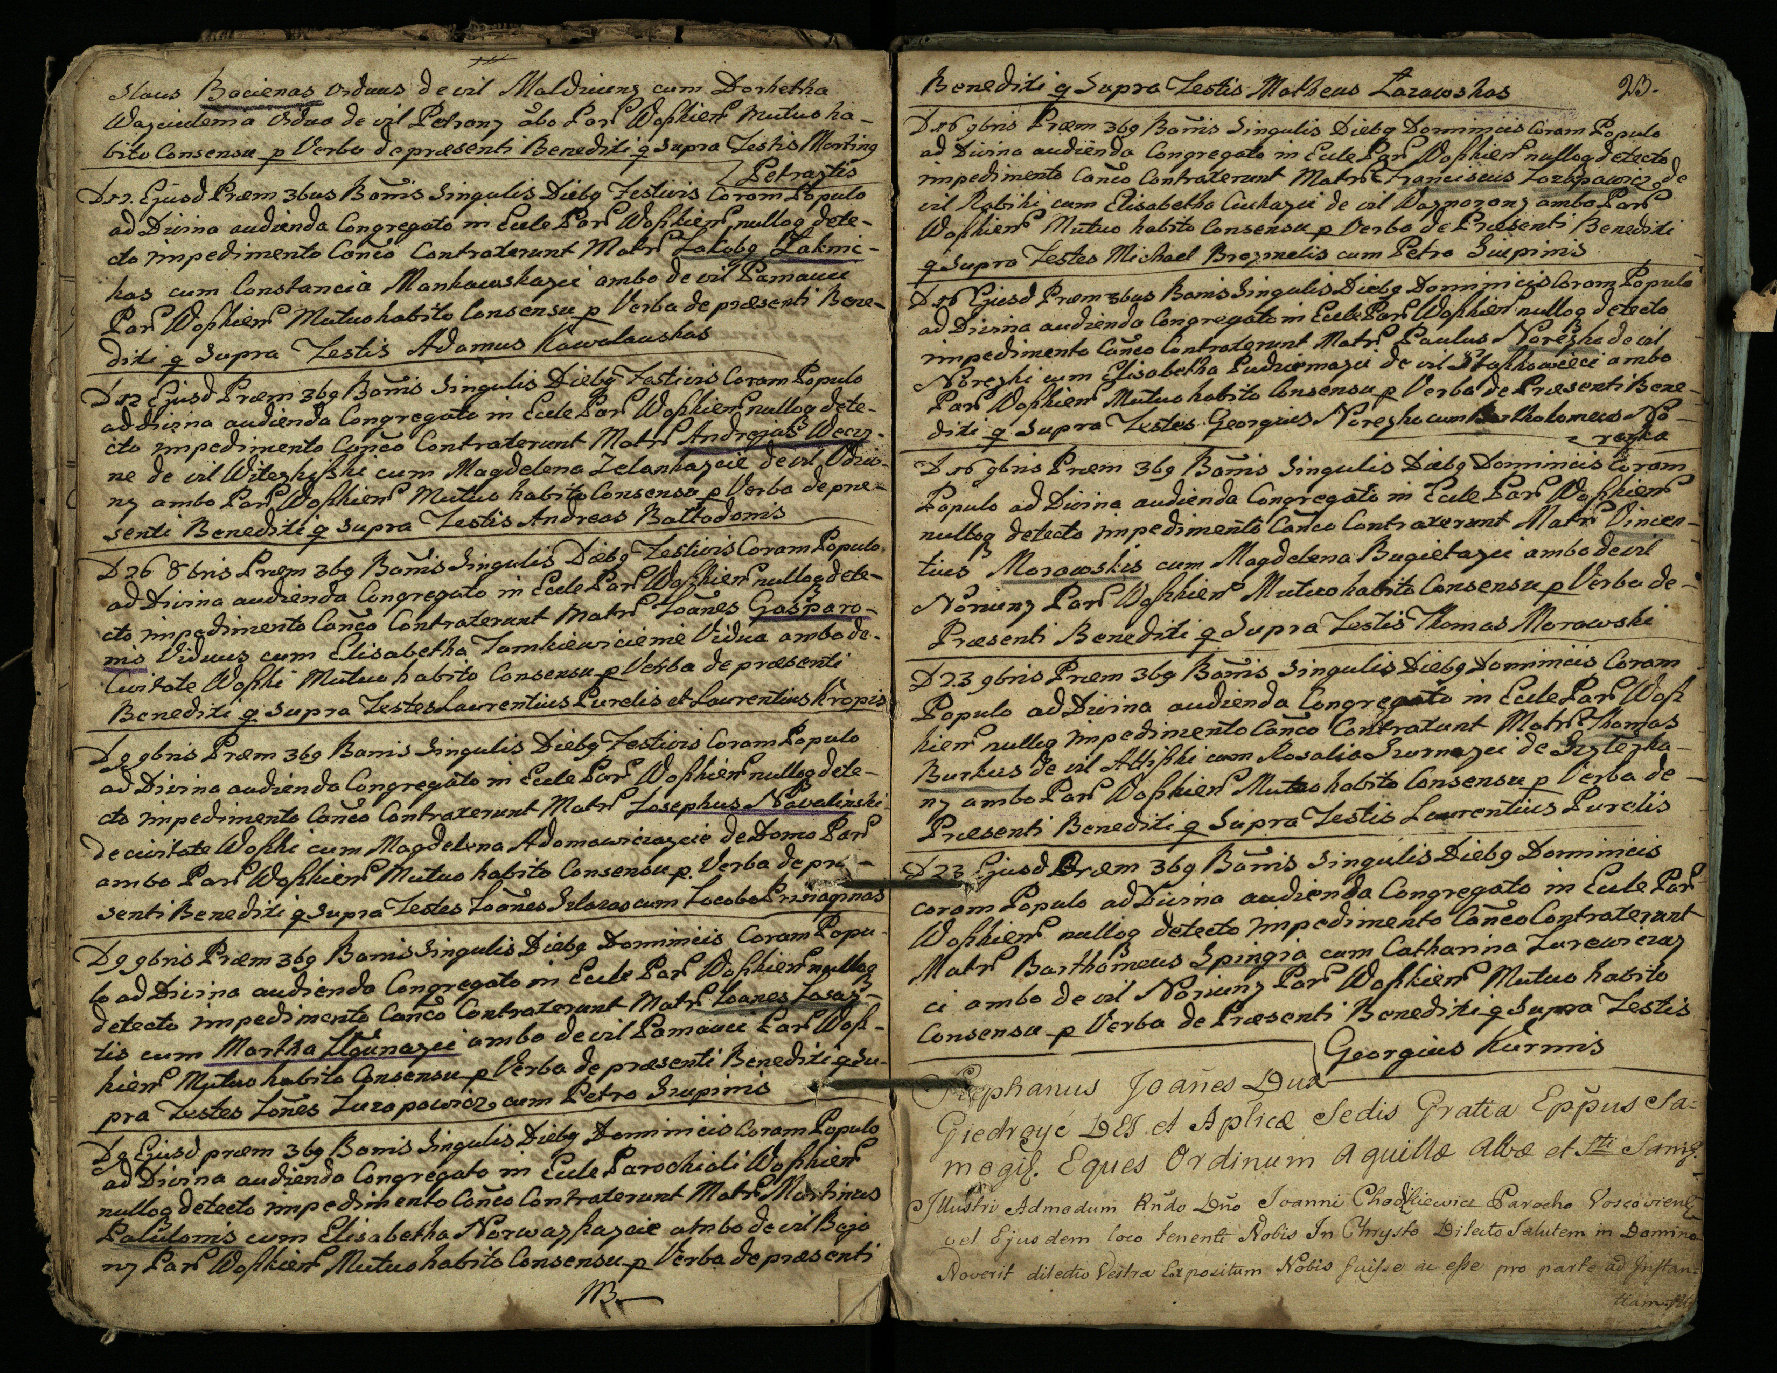 slaus Bacienas Viduus de vil Maldziuny cum Dorhetha
Vidua de vil Petrany abo Par Woẞkien Mutuo ha-
bito Consensu p Verba de præsenti Benedicti q Supra Testis Marting
Petraytis
D 12. Ejusd Præm 3bus Banis Singulis Diebg Festivis Coram Populo
ad Divina audienda Congregato in Ecctle Par Woẞkien nullog dete-
cto impedimento Canco Contraxerunt Matr Jakobg
kas cum Constancia Mankawskazci ambo de vil Pamauce
Par Woẞkien Mutuo habito Consensu p Verba de præsenti Bene-
dicti q Supra Testis Adamus Kowalauskas
D 12 Ejusd Præm 3bg Banis Singulis Diebg Festivis Coram Populo
ad Divina audienda Congregato in Eccle Par Woẞkien nullog dete-
cto impedimento Canco Contraxerunt Matr Andrejas
ne de vil cum Magdelena Zelankazcie de vil
ny ambo Par Woẞkien Mutuo habito Consensu p Verba de præ-
senti Benedicti q Supra Testis Andreas Baltodonis
D 26 8bris Præm 3bg Banis Singulis Diebg Festivis Coram Populo
ad Divina audienda Congregato in Eccle Par Woẞkien nullog dete-
cto impedimento Canco Contraxerunt Matr Joanes Gasparo-
nis Viduus cum Elisabetha Jamkiewicienie Vidua ambo de
Civitate Woẞki Mutuo habito Consensu p Verba de præsenti
Benedicti q Supra Testes Laurentius Purelis et Laurentius Kropis
D 9 9bris Præm 3bg Banis Singulis Diebg Festivis Coram Populo
ad Divina audienda Congregato in Eccle Par Woẞkien nullog dete-
cto impedimento Canco Contraxerunt Matr Josephus Navalinski
de civitate Woẞki cum Magdelena Adamowiczazcie de Domo Par
ambo Par Woẞkien Mutuo habito Consensu p. Verba de præ-
senti Benedicti q Supra Testes Joanes cum Jacobo
D 9 9bris Præm 3bg Banis Singulis Diebg Dominicis Coram Popu-
lo ad Divina audienda Congregato in Eccle Par Woẞkien nullog
detecto impedimento Canco Contraxerunt Matr Joanes Jasay-
tis cum Martha ambo de vil Pamauce Par Woẞ-
kien Mutuo habito Consensu p Verba de præsenti Benedicti q Su-
pra Testes Joñes Juzopowicz cum Petro Siupinis
D 9 Ejusd præm 3bg Banis Singulis Diebg Dominicis Coram Populo
ad Divina audienda Congregato in Eccle Parochiali Woẞkien
nullog detecto impedimento Canco Contraxerunt Matr Martinus
Palulonis cum Elisabetha Norwayszazcie ambo de vil Bajo
ny Par Woẞkien Mutuo habito Consensu p Verba de præsenti
Benedicti q Supra Testis Matheus Lazawskas 23.
D 16 9bris Præm 3bg Banis Singulis Diebg Dominicis Coram Populo
ad Divina audienda Congregato in Eccle Par Woẞkien nullog detecto
impedimento Canco Contraxerunt Matr Franciscus Jozepawicz de
vil Rabiki cum Elisabetha de vil ambo Par
Woẞkien Mutuo habito Consensu p Verba de Præsenti Benedicti
q Supra Testes Michael Brozmelis cum Petro Siupinis
D 16 Ejusd Præm 3bus Banis Singulis Diebg Dominicis Coram Populo
ad Divina audienda Congregato in Eccle Par Woẞkien nullog detecto
impedimento Canco Contraxerunt Matr Paulus Noreyko de vil
Noreyki cum Elisabetha de vil ambo
Par Woẞkien Mutuo habito Consensu p Verba de Præsenti Bene-
dicti q Supra Testes Georgius Noreyko cum Bartholomeus No-
reyka
D 16 9bris Præm 3bg Banis Singulis Diebg Dominicis Coram
Populo ad Divina audienda Congregato in Eccle Par Woẞkien
nullog detecto impedimento Canco Contraxerunt Matr Vincen-
tius Morawskis cum Magdelena Bugietazci ambo de vil
Noriuny Par Woẞkien Mutuo habito Consensu p Verba de
Præsenti Benedicti q Supra Testis Thomas Morawski
D 23 9bris Præm 3bg Banis Singulis Diebg Dominicis Coram
Populo ad Divina audienda Congregato in Eccle Par Woẞ
kien nullog impedimento Canco Contraxunt Matr Thomas
Burkus de vil cum Rosalia de
ny ambo Par Woẞkien Mutuo habito Consensu p Verba de
Præsenti Benedicti q Supra Testis Laurentius Purelis
D 23 Ejusd Præm 3bg Banis Singulis Diebg Dominicis
coram Populo ad Divina audienda Congregato in Eccle Par
Woẞkien nullog detecto impedimento Canco Contraxerunt
Matr Barthomeus Spingia cum Catharina Zurawiczay
ci ambo de vil Noriuny Par Woẞkien Mutuo habito
Consensu p Verba de Præsenti Benedicti q Supra Testis
Georgius Kurmis
Stephanus Joañes Dux
Giedroyć DEI et Aplicæ Sedis Gratia Eppus Sa=
mogit. Eques Ordinum Aquillæ Albæ et Sti Stanis.
Illustri Admodum Rñdo Dño Joanni Chodkiewicz Parocho
vel Ejusdem loco tenenti Nobis In Chrysto Dilecto Salutem in Domino
Noverit dilectio Vestra Expositum Nobis fuiße ac eße pro parte ad Instan=
tiam